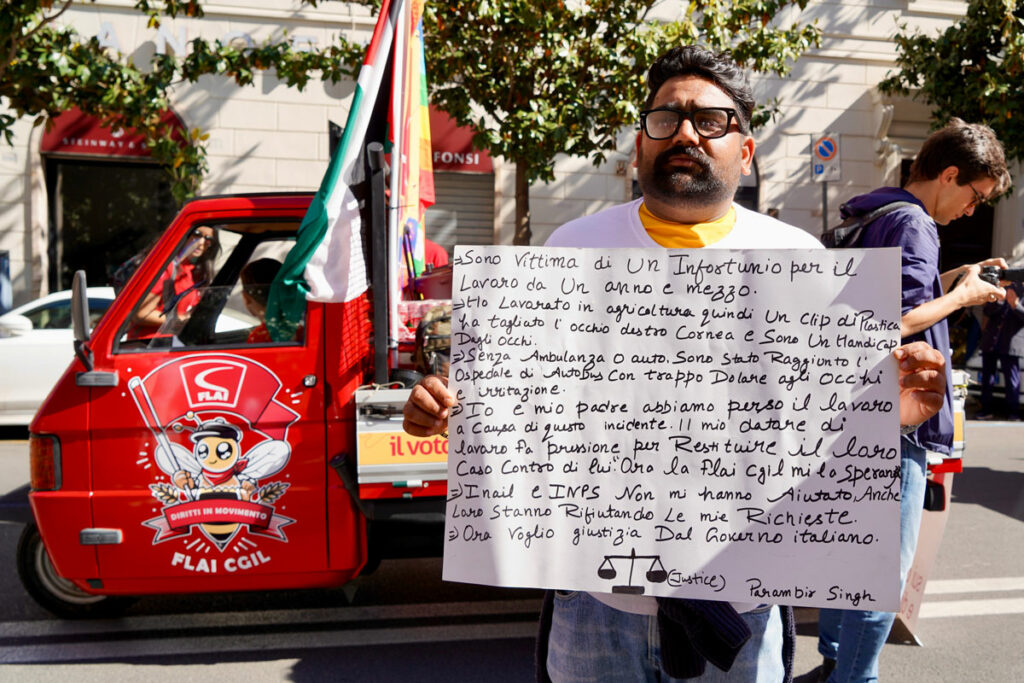 ANGE
STEINWAY &
FONSI
FLAI
DIRITTI IN MOVIMENTO
FLAI CGIL
il voto
⇒ Sono Vittima di Un Infortunio per il
Lavoro da Un anno e mezzo.
⇒ Ho Lavorato in agricoltura quindi Un clip di Plastica
ha tagliato l'occhio destro Cornea e Sono Un Handicap
Dagli Occhi.
⇒ Senza Ambulanza o auto. Sono Stato Raggiunto l'
Ospedale di Autobus Con trappo Dolare agli Occhi
e irritazione.
⇒ Io e mio padre abbiamo perso il lavoro
a Causa di questo incidente. Il mio datare di
lavoro fa pressione per Restituire il loro
Caso Contro di lui. Ora la Flai cgil mi la Speranza
⇒ Inail e INPS Non mi hanno Aiutato, Anche
Loro Stanno Rifiutando Le mie Richieste.
⇒ Ora Voglio giustizia Dal Governo italiano.
(Justice)
Parambir Singh